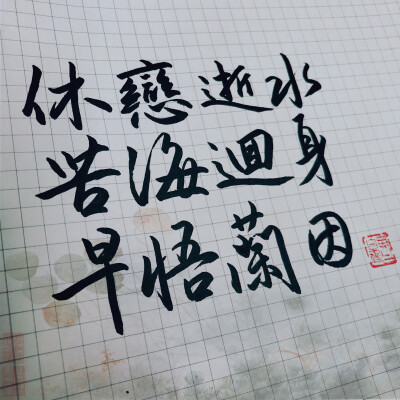 休戀逝水
苦海迴身
早悟蘭因